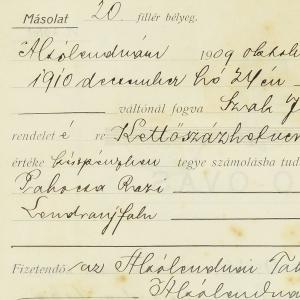 Másolat 20 fillér bélyeg.
Alsólendván 1909 októb
1910 december hó 24én
váltónál fogva Szak J
rendelet é re Kettőszázhetven
értéke készpénzben tegye számolásba tud
Pahocsa Rozi
Lendvanyfalu
Fizetendő az Alsólendvai Tak
Alsólendva